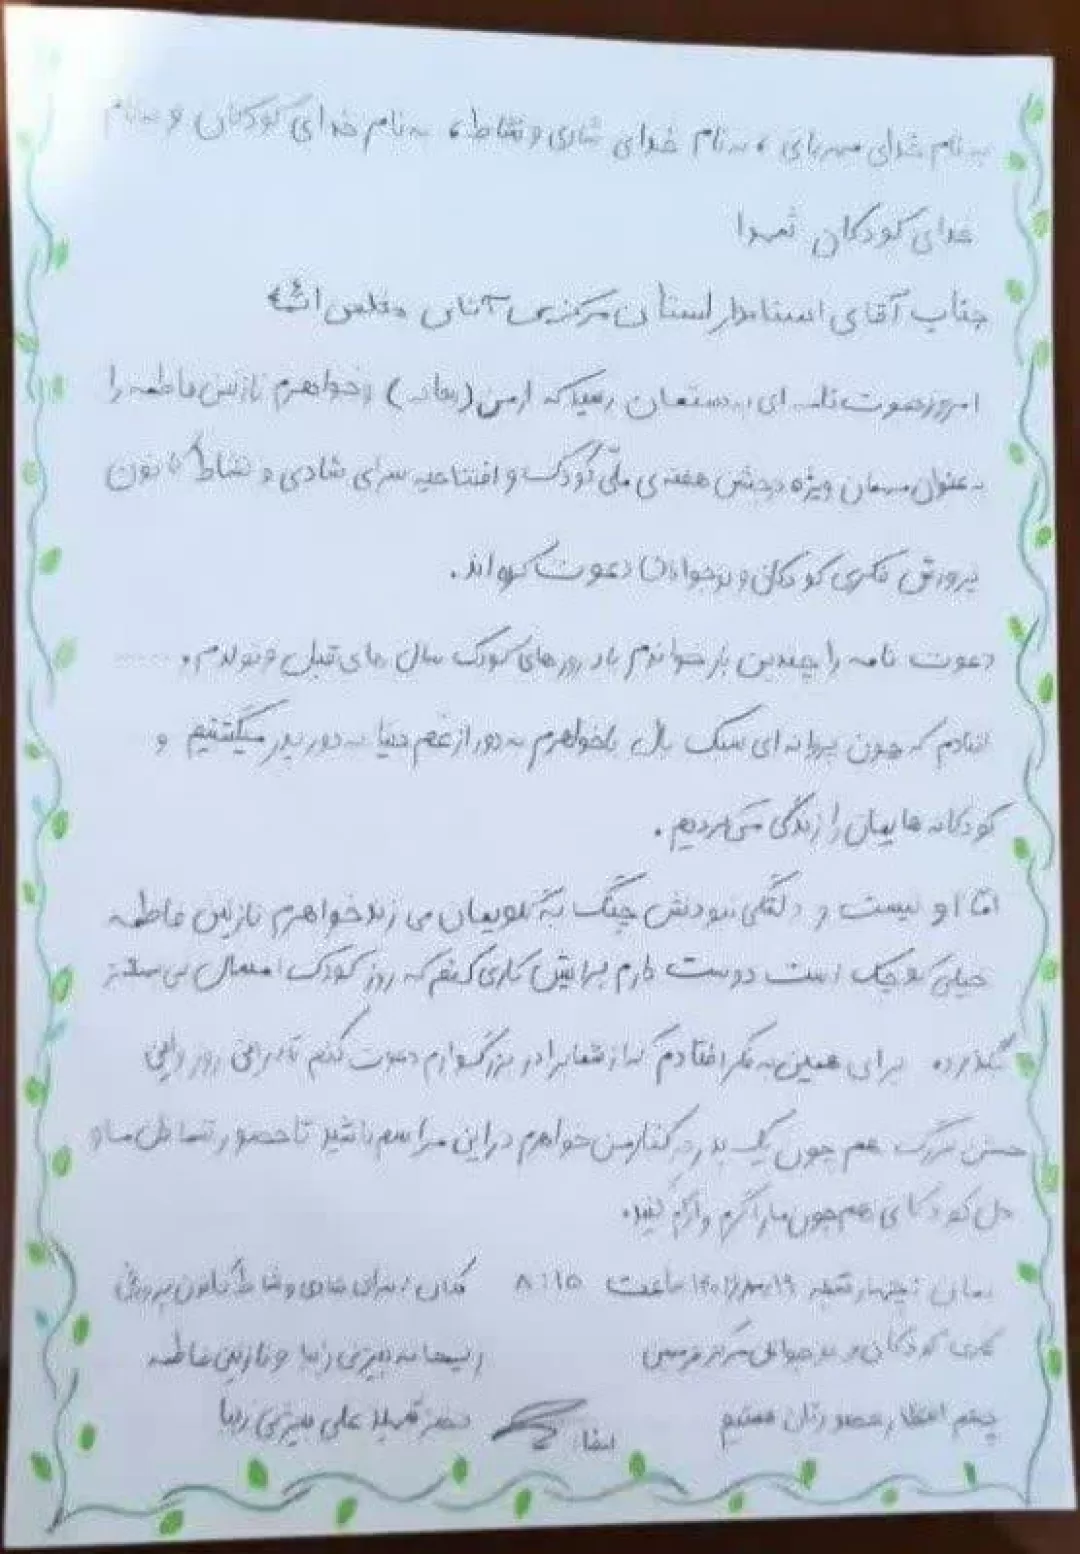 به نام خدای مهربانی، به نام خدای شادی و نشاط، به نام خدای کودکان و به نام
خدای کودکان شهدا
جناب آقای استاندار استان مرکزی آقای مخلص الائمه
امروز دعوت نامه ای به دستمان رسید که از من (ریحانه) و خواهرم نازنین فاطمه را
به عنوان مهمان ویژه در جشن هفته ی ملّی کودک و افتتاحیه سرای شادی و نشاط کانون
پرورش فکری کودکان و نوجوانان دعوت کرده اند.
دعوت نامه را چندین بار خواندم یاد روزهای کودک سال های قبل و تولدم و ......
افتادم که چون پروانه ای سبک بال با خواهرم به دور از غم دنیا به دور پدر میگشتیم و
کودکانه هایمان را زندگی می کردیم.
امّا او نیست و دلتنگی نبودنش چنگ به گلویمان می زند خواهرم نازنین فاطمه
خیلی کوچک است دوست دارم برایش کاری کنم که روز کودک امسال بی
نگذرد برای همین به فکر افتادم که از شما برادر بزرگوارم دعوت کنم تا در این روز و این
جشن بزرگ هم چون یک پدر در کنار من خواهرم در این مراسم باشید تا حضور شما دل ما و
دل کودکانی هم چون ما را گرم و آرام کنید.
زمان: چهارشنبه ساعت ۸:۱۵ مکان: سرای شادی و نشاط کانون پرورش
فکری کودکان و نوجوانان مرکز ریحانه میرزی زیبا و نازنین فاطمه
چشم انتظار حضورتان هستیم امضاء شهید علی میرزی زیبا